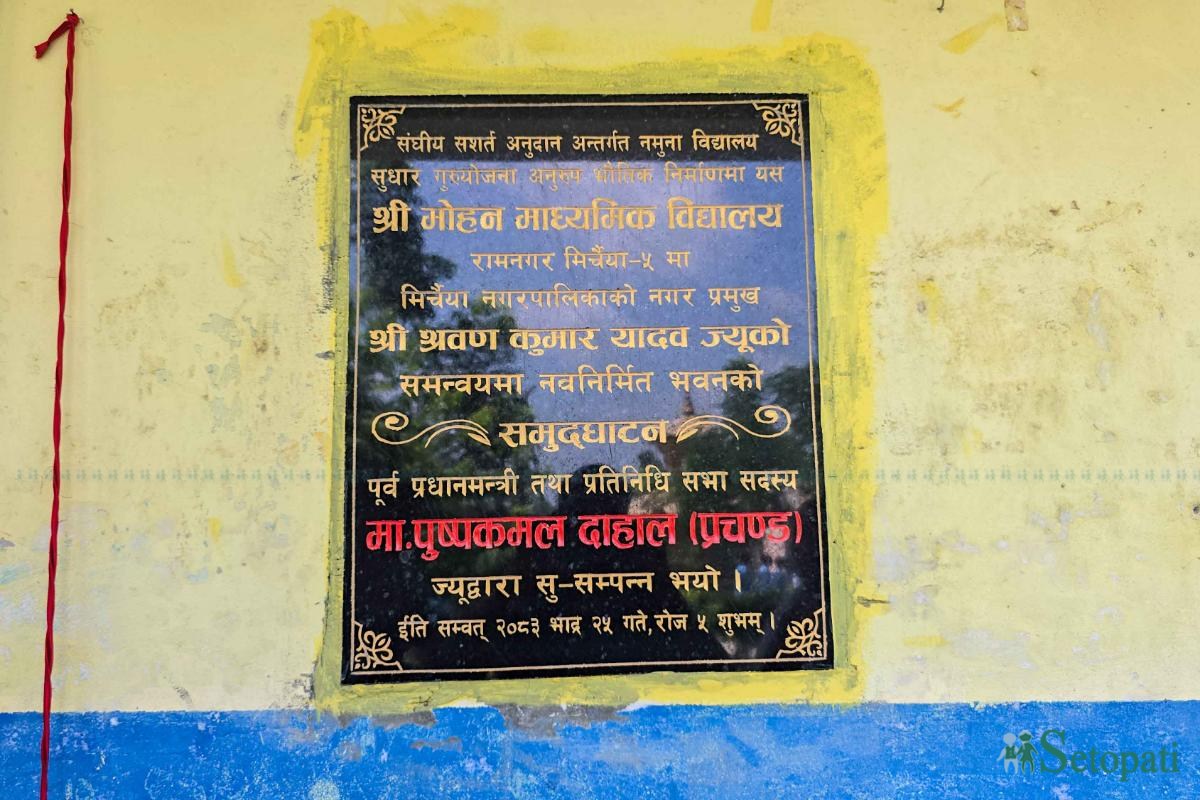 संघीय सशर्त अनुदान अन्तर्गत नमुना विद्यालय
सुधार गुरुयोजना अनुरुप भौतिक निर्माणमा यस
श्री मोहन माध्यमिक विद्यालय
रामनगर मिर्चैया-५ मा
मिर्चैया नगरपालिकाको नगर प्रमुख
श्री श्रवण कुमार यादव ज्यूको
समन्वयमा नवनिर्मित भवनको
समुदघाटन
पूर्व प्रधानमन्त्री तथा प्रतिनिधि सभा सदस्य
मा.पुष्पकमल दाहाल (प्रचण्ड)
ज्यूद्वारा सु-सम्पन्न भयो ।
ईति सम्वत् २०८३ भाद्र २५ गते, रोज ५ शुभम् ।
Setopati